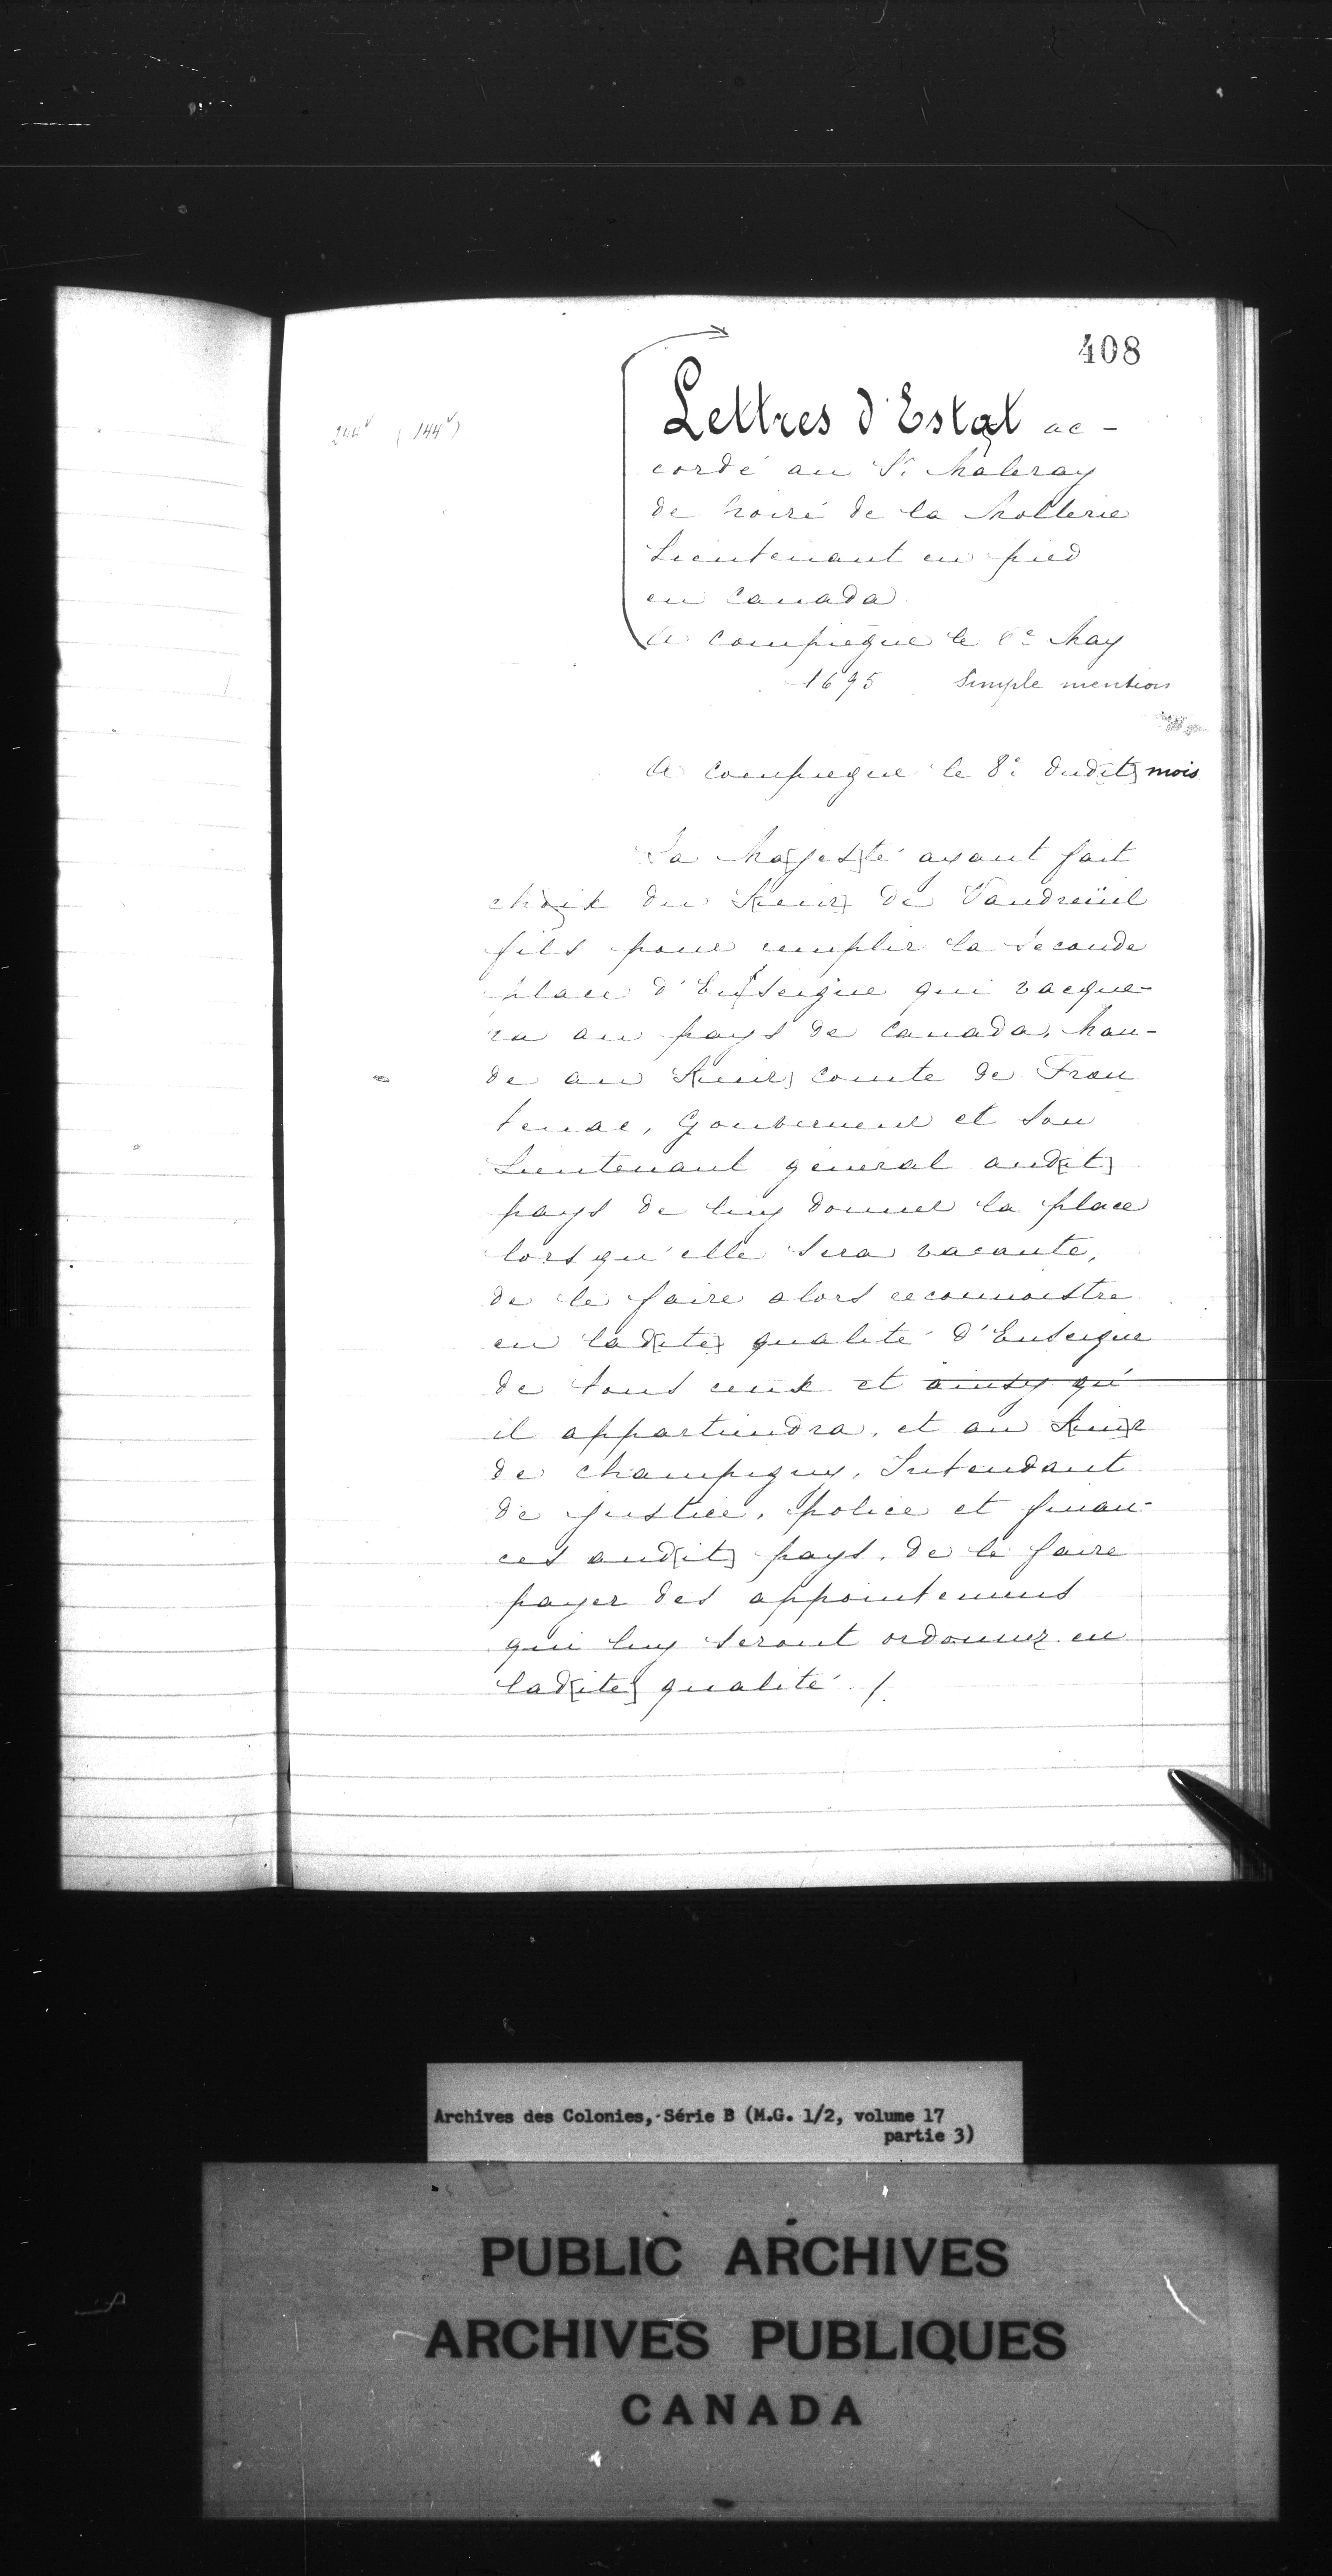 408
244v (144v)
Lettres d'Estat ac-
cordé au Sr. Maleray
de Noiré de la Mollerie
Lieutenant en pied
en Canada.
A Compiegne le 6e May
1695 Simple mention
A Compiegne le 8e dud[it] mois
Sa Ma[jes]té ayant fait
choix du S[ieur] de Vaudreüil
fils pour remplir la seconde
place d'Enseigne qui vacque-
ra au pays de Canada, Man-
de au S[ieur] Comte de Fron
tenac, Gouverneur et son
Lieutenant général aud[it]
pays de luy donner la place
lorsqu'elle sera vacante,
de le faire alors reconnoistre
en lad[ite] qualité d'Enseigne
de tous ceux et ainsy qu'
il appartiendra, et au S[ieur]
de Champigny, Intendant
de justice, police et finan-
ces aud[it] pays, de le faire
payer des appointemens
qui luy seront ordonnez en
lad[ite] qualité ./.
Archives des Colonies, Série B (M.G. 1/2, volume 17
partie 3)
PUBLIC ARCHIVES
ARCHIVES PUBLIQUES
CANADA